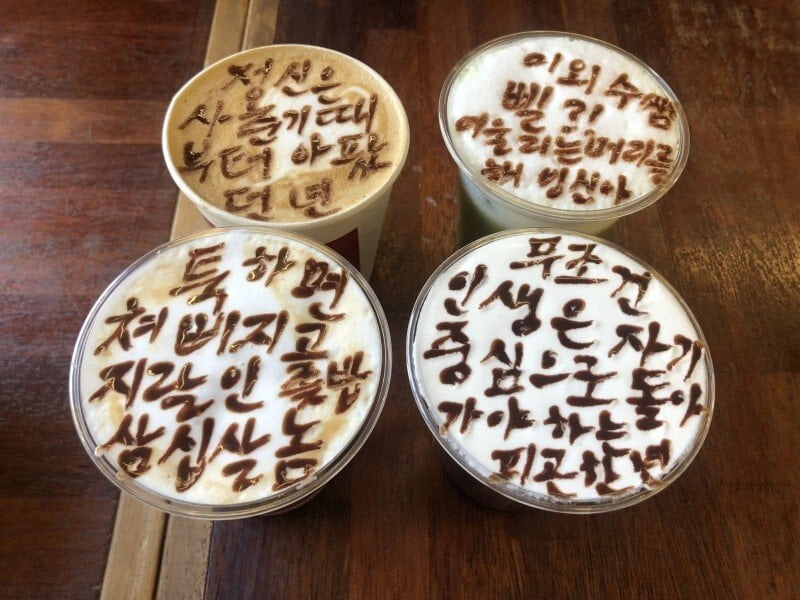 정신은
사춘기때
부터 아팠
던 년
이외수쌤
뻴?!
어울리는머리를
해 빙신아
툭하면
쳐삐지고
지랄인 좁밥
삼십살놈
무조건
인생은 자기
중심으로 돌아
가야하는
피곤한년